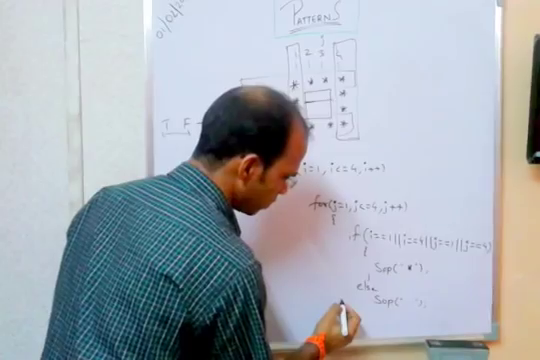 01/02/
PATTERNS
j
1 2 3 4
* * * *
* *
* *
* * *
T F
i=1, i<=4, i++)
for(j=1, j<=4, j++)
{
if (i==1||i==4||j==1||j==4)
{
Sop("*");
}
else
Sop(" ");